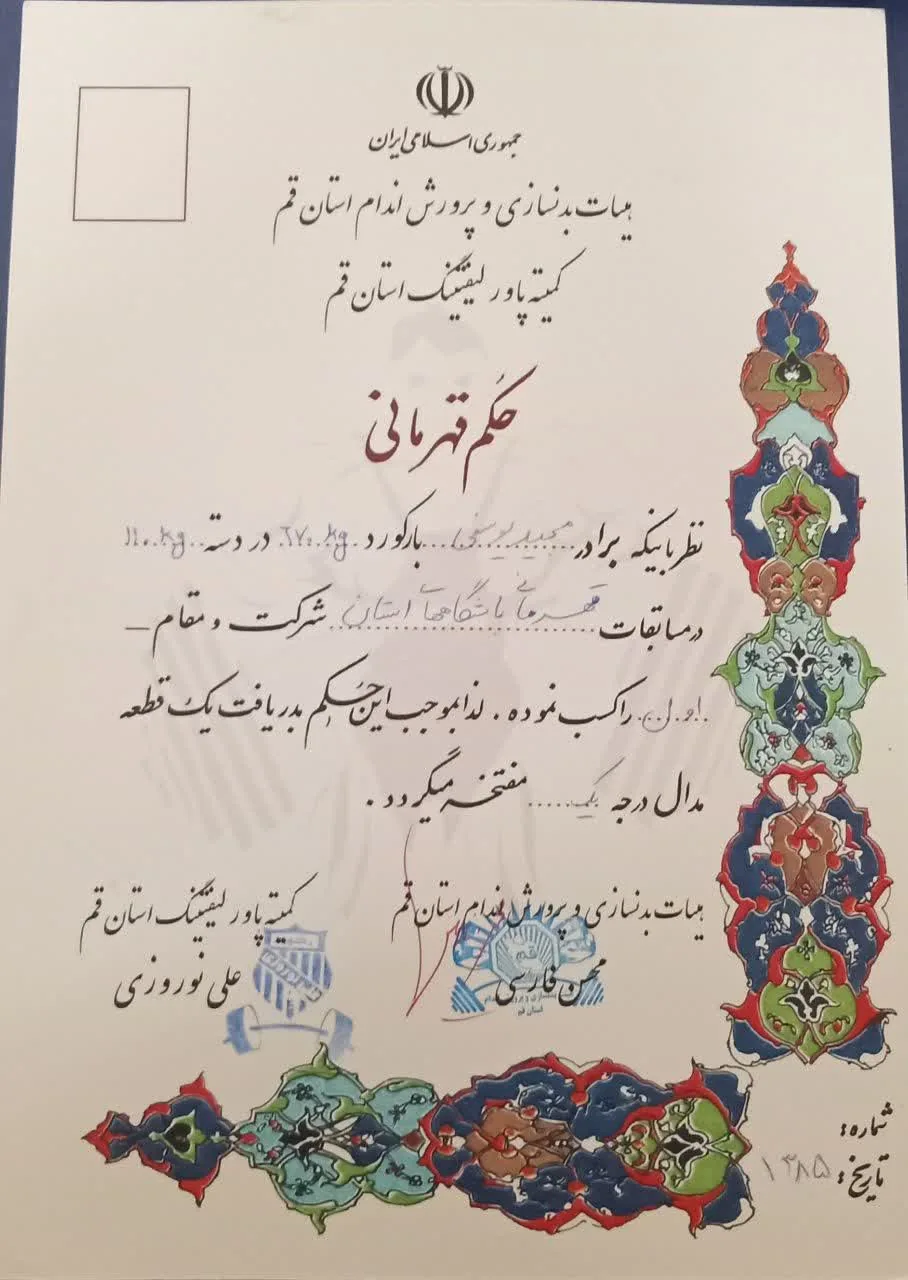 جمهوری اسلامی ایران
هیات بدنسازی و پرورش اندام استان قم
کمیته پاور لیفتینگ استان قم
حکم قهرمانی
نظر باینکه برادر مجید یوسفی بارکورد ۲۷۰ kg در دسته ۱۱۰ kg
در مسابقات قهرمانی باشگاههای استان شرکت و مقام
اول را کسب نموده . لذا بموجب این حکم بدریافت یک قطعه
مدال درجه یک مفتخر میگردد .
هیات بدنسازی و پرورش اندام استان قم
محسن فارسی
کمیته پاور لیفتینگ استان قم
علی نوروزی
شماره:
تاریخ: ۱۳۸۵